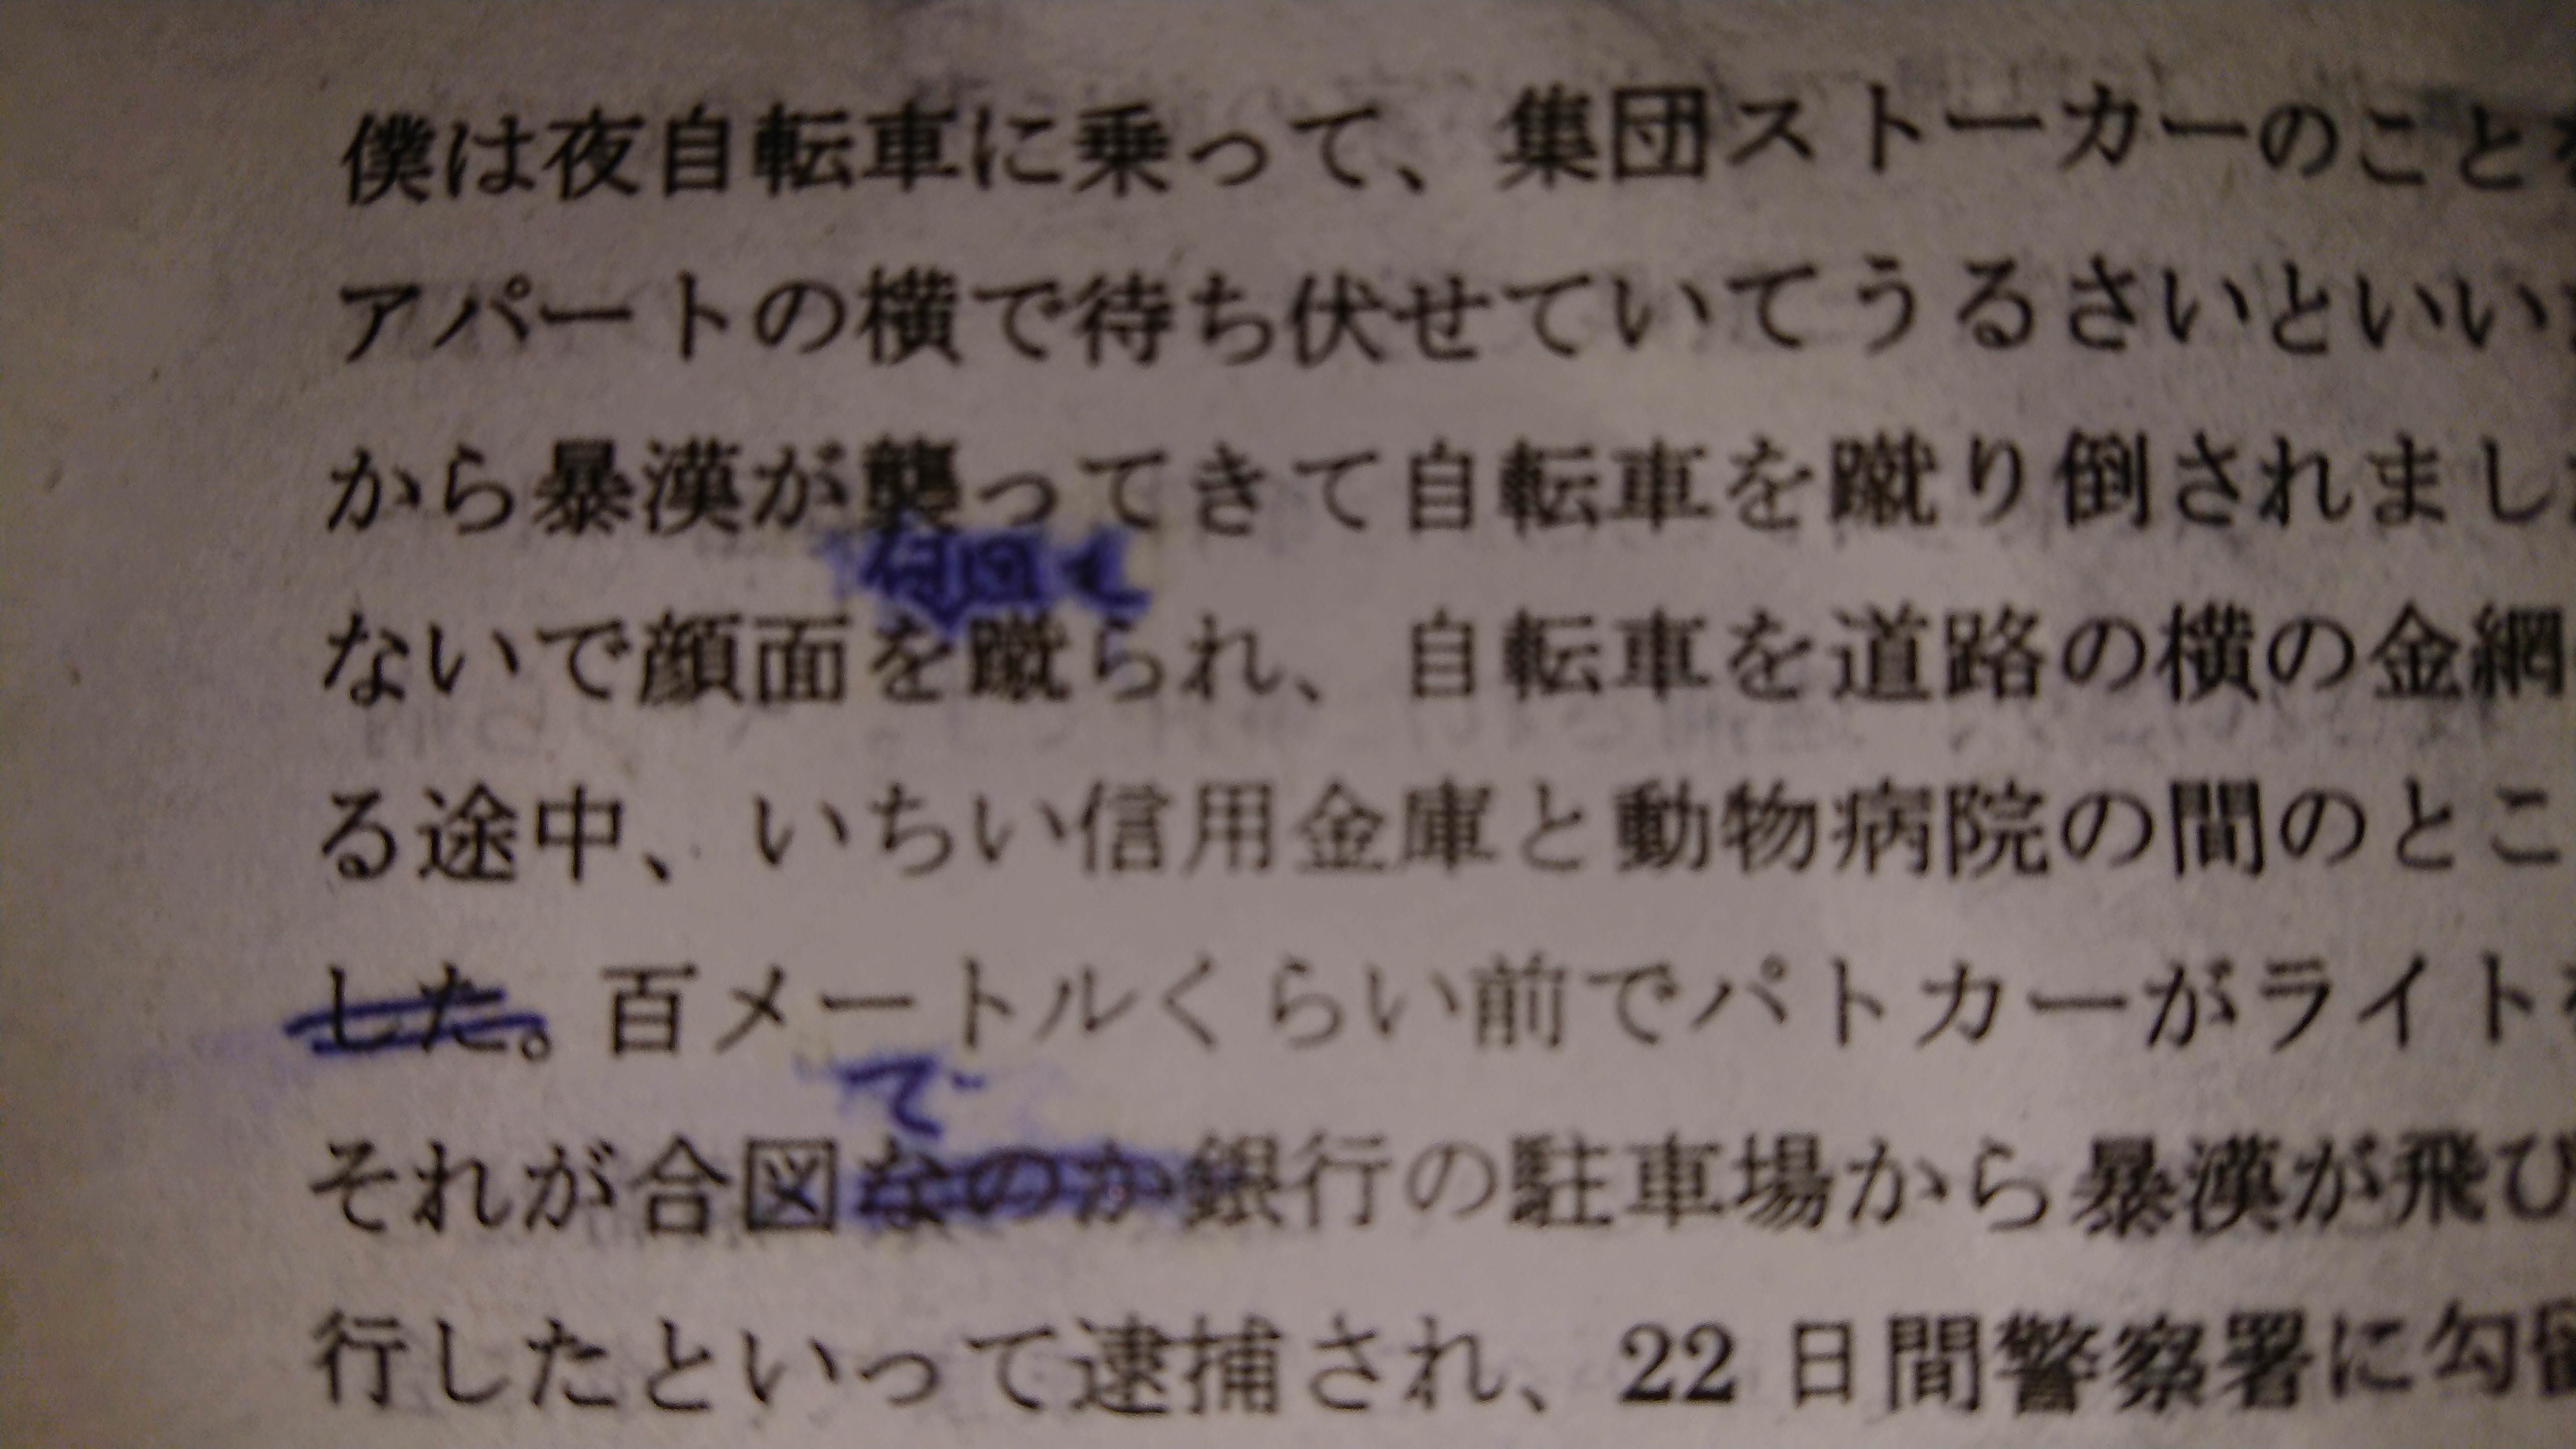 僕は夜自転車に乗って、集団ストーカーのこと
アパートの横で待ち伏せていてうるさいといい
から暴漢が襲ってきて自転車を蹴り倒されまし
何回も
ないで顔面を蹴られ、自転車を道路の横の金網
る途中、いちい信用金庫と動物病院の間のとこ
した。百メートルくらい前でパトカーがライト
で
それが合図なのか銀行の駐車場から暴漢が飛び
行したといって逮捕され、22日間警察署に勾留